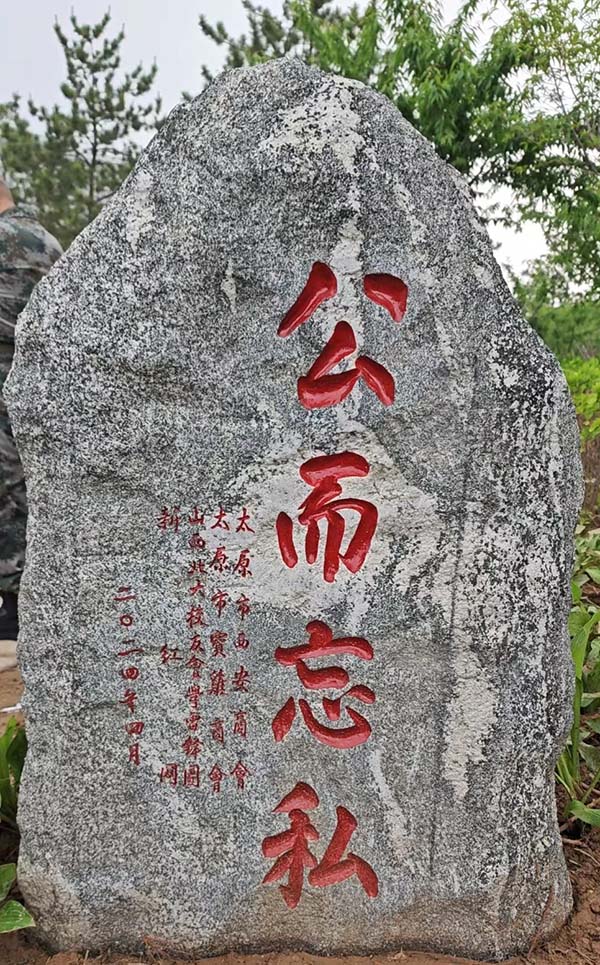 公而忘私
太原市西安商會
太原市寶雞商會
山西北大校友會學雷鋒團
新紅网
二〇二四年四月